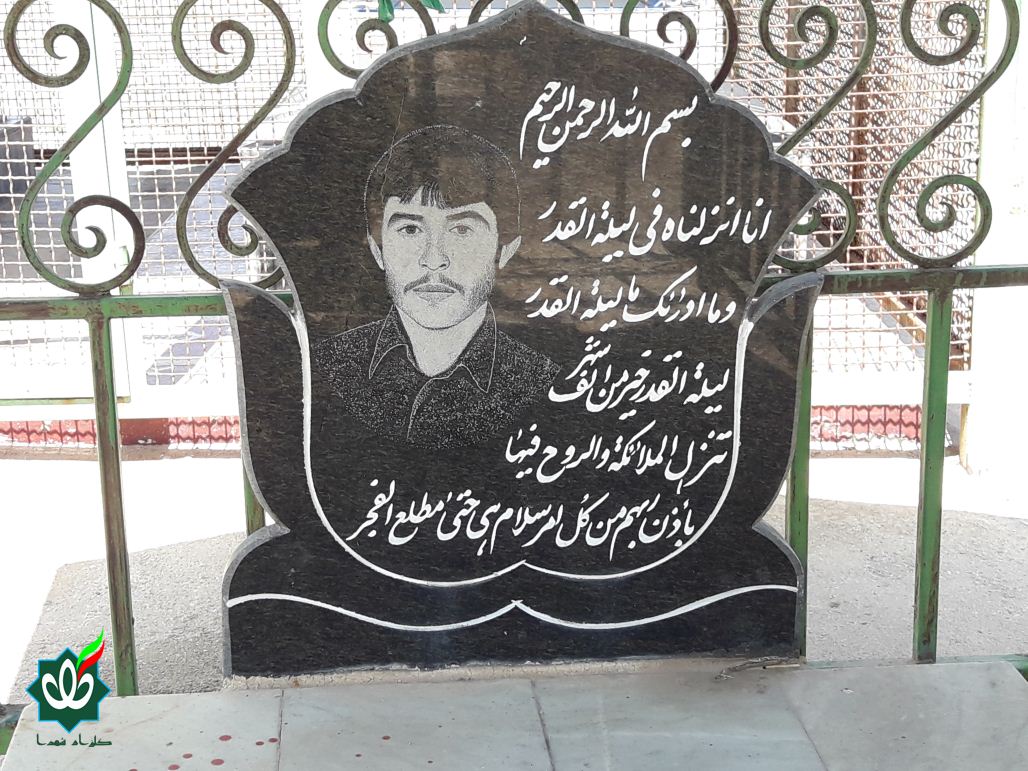 بسم الله الرحمن الرحیم
انا انزلناه فی لیلة القدر
وما ادرٰنک ما لیلة القدر
لیلة القدر خیر من الف شهر
تنزل الملائکة والروح فیها
بأذن ربهم من کل امر سلام هی حتیٰ مطلع الفجر
گلزار شهدا